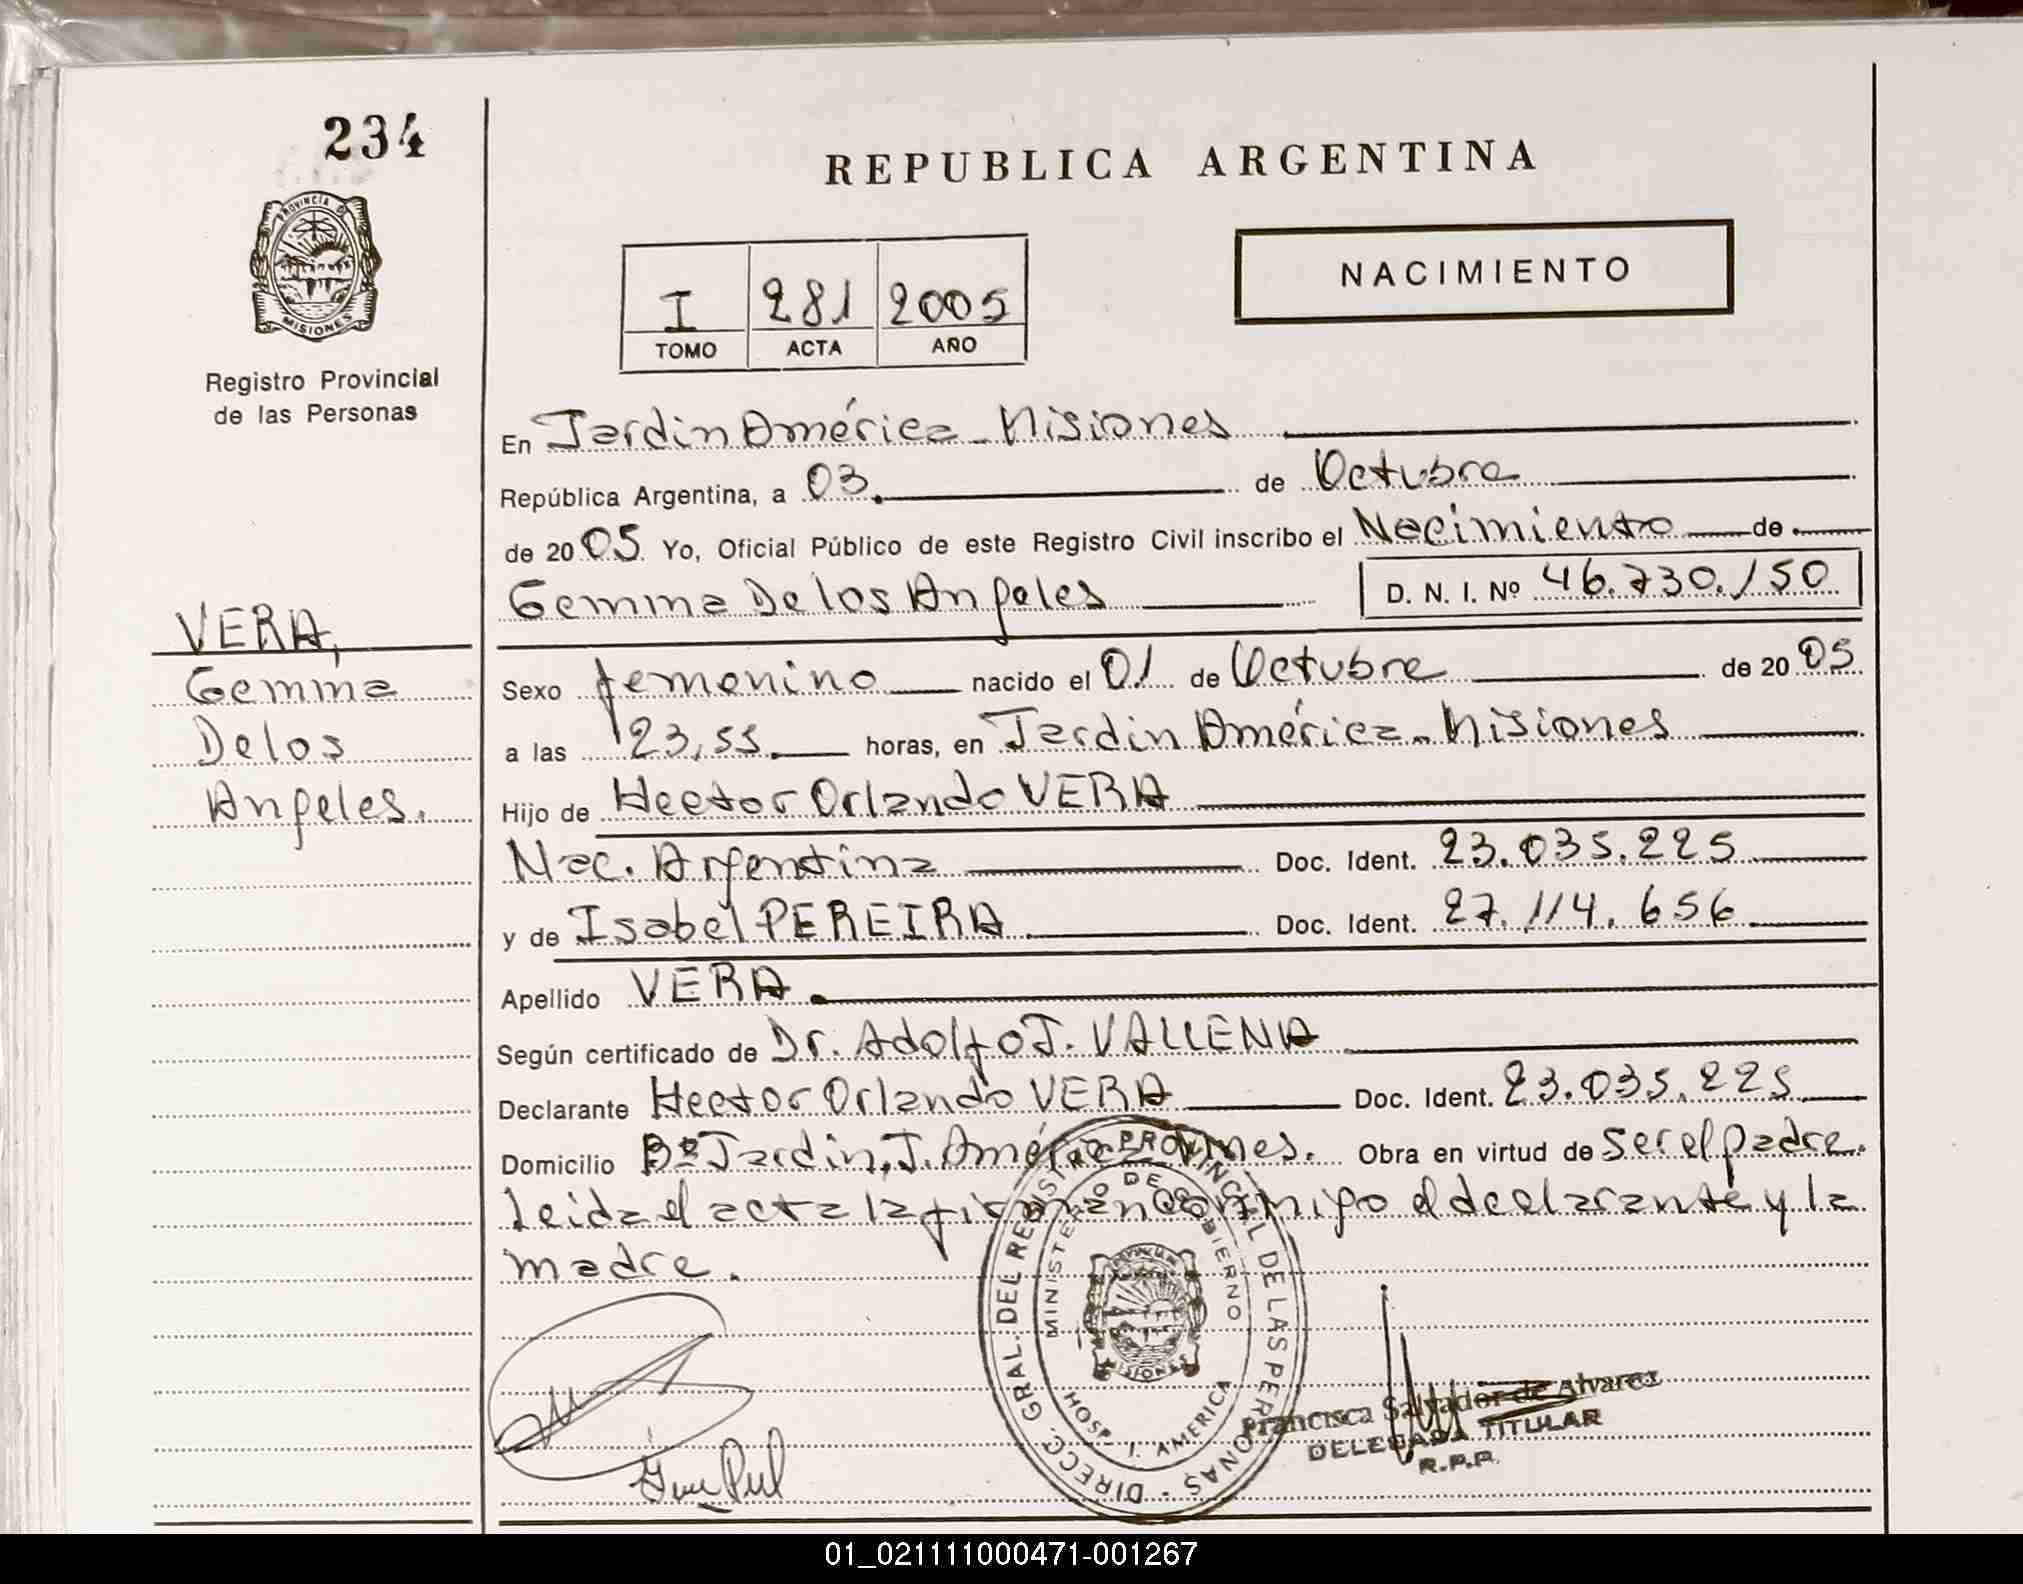 234
REPUBLICA ARGENTINA
PROVINCIA DE
MISIONES
Registro Provincial
de las Personas
I 281 2005
TOMO ACTA AÑO
NACIMIENTO
En Jardin América - Misiones
República Argentina, a 03. de Octubre
de 2005 Yo, Oficial Público de este Registro Civil inscribo el Nacimiento de
Gemma De los Angeles D. N. I. Nº 46.730.150
VERA,
Gemma
De los
Angeles.
Sexo femenino nacido el 01 de Octubre de 2005
a las 23,55. horas, en Jardin América - Misiones
Hijo de Hector Orlando VERA
Nac. Argentina Doc. Ident. 23.035.225
y de Isabel PEREIRA Doc. Ident. 27.114.656
Apellido VERA.
Según certificado de Dr. Adolfo J.
Declarante Hector Orlando VERA Doc. Ident. 23.035.225
Domicilio Bº Jardin, J. América Mnes. Obra en virtud de ser el padre.
Leida el acta la firman conmigo el declarante y la
madre.
DIRECC. GRAL. DEL REGISTRO PROVINCIAL DE LAS PERSONAS
MINISTERIO DE GOBIERNO
MISIONES
HOSP. J. AMERICA
Francisca Salvador de Alvarez
DELEGADA TITULAR
R.P.P.
01_021111000471-001267